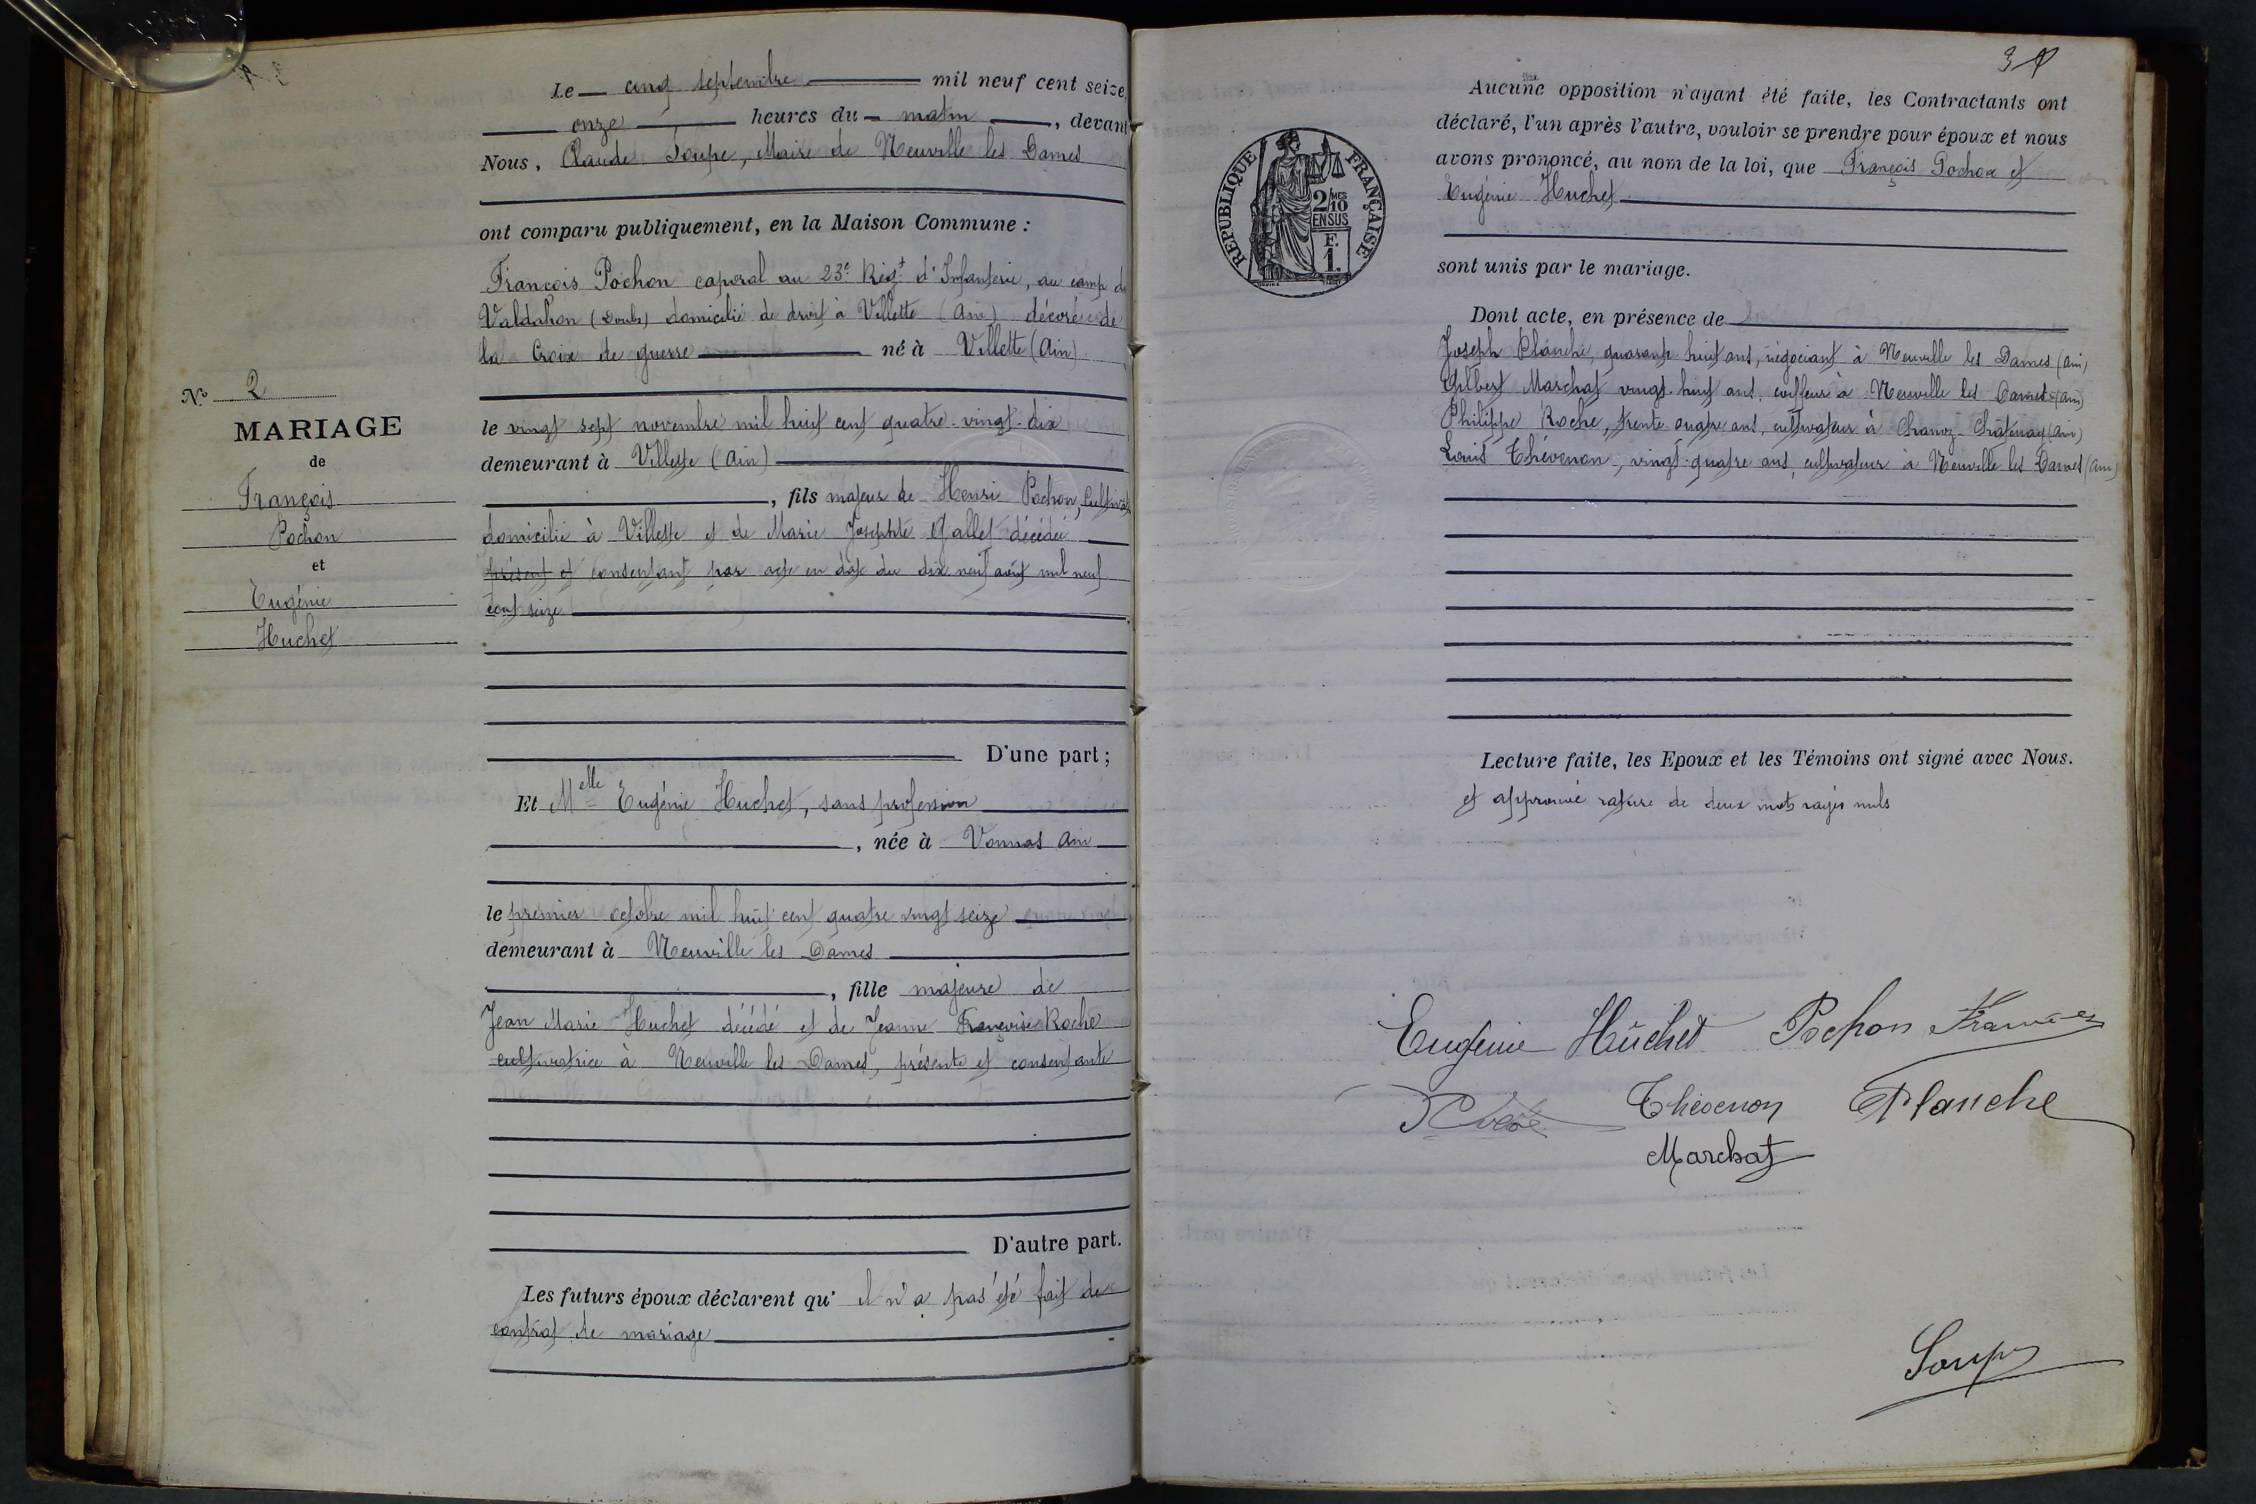 Le cinq septembre mil neuf cent seize,
onze heures du matin, devant
Nous, Claude Soupe, Maire de Neuville les Dames
ont comparu publiquement, en la Maison Commune :
François Pochon caporal au 23e Régt d'Infanterie, au camp du
Valdahon (Doubs) domicilié de droit à Villette (Ain) décoré de
la Croix de guerre né à Villette (Ain)
le vingt sept novembre mil huit cent quatre-vingt-dix
demeurant à Villette (Ain)
, fils majeur de Henri Pochon, Cultivat
domicilié à Villette et de Marie Josephte Gallet décédée
présent et consentant par acte en date du dix neuf août mil neuf
cent seize
D'une part;
Et Melle Eugénie Huchet, sans profession
, née à Vonnas Ain
le premier octobre mil huit cent quatre vingt seize
demeurant à Neuville les Dames
, fille majeure de
Jean Marie Huchet décédé et de Jeanne Françoise Roche
cultivatrice à Neuville les Dames, présente et consentante
D'autre part.
Les futurs époux déclarent qu' il n'a pas été fait de
contrat de mariage
No 2
MARIAGE
de
François
Pochon
et
Eugénie
Huchet
Aucune opposition n'ayant été faite, les Contractants ont
déclaré, l'un après l'autre, vouloir se prendre pour époux et nous
avons prononcé, au nom de la loi, que François Pochon et
Eugénie Huchet
sont unis par le mariage.
Dont acte, en présence de
Joseph Planche, quarante-huit ans, négociant à Neuville les Dames (Ain)
Gilbert Marchat vingt-huit ans, coiffeur à Neuville les Dames (Ain)
Philippe Roche, trente quatre ans, cultivateur à Chanoz-Chatenay (Ain)
Louis Thévenon, vingt-quatre ans, cultivateur à Neuville les Dames (Ain)
Lecture faite, les Epoux et les Témoins ont signé avec Nous.
et approuvé rature de deux mots rayés nuls
RÉPUBLIQUE FRANÇAISE
2/10MES
EN SUS
F.
1.
Eugénie Huchet Pochon François
Thévenon Planche
Marchat
Soupe